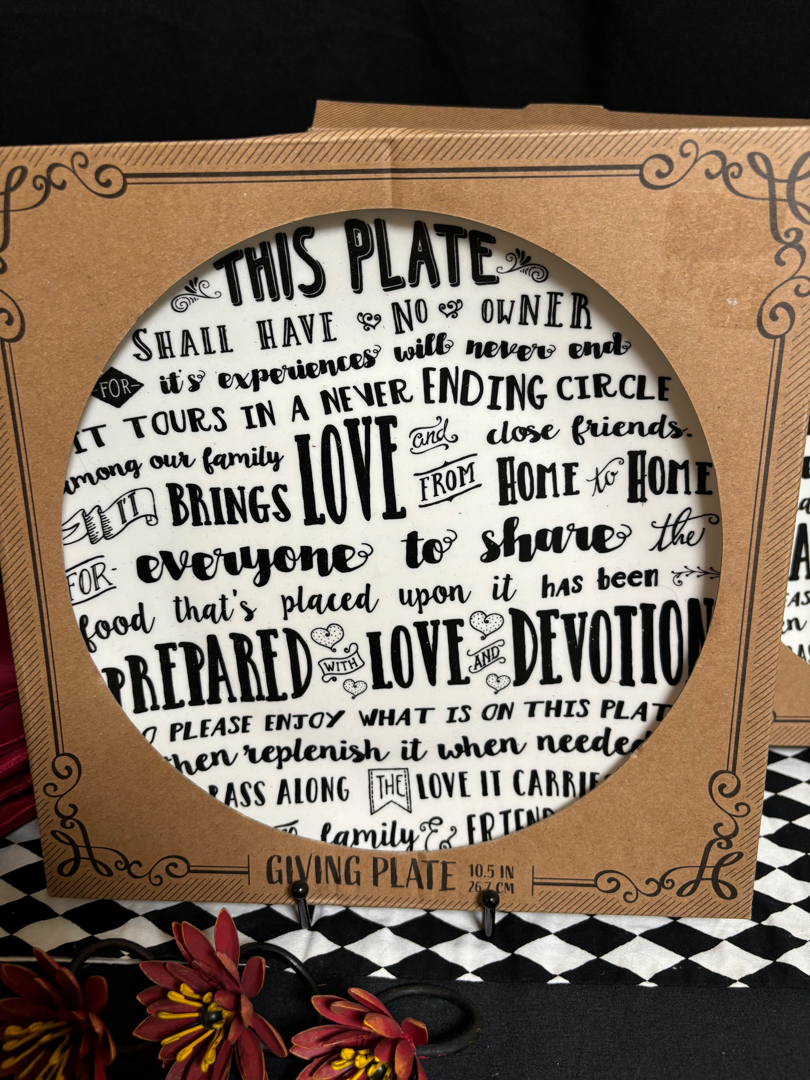 THIS PLATE
SHALL HAVE NO OWNER
FOR it's experiences will never end
IT TOURS IN A NEVER ENDING CIRCLE
among our family LOVE and close friends.
IT BRINGS FROM HOME to HOME
FOR everyone to share the
food that's placed upon it has been
PREPARED WITH LOVE AND DEVOTION
O PLEASE ENJOY WHAT IS ON THIS PLAT
then replenish it when needed
PASS ALONG THE LOVE IT CARRIES
family & FRIEND
GIVING PLATE 10.5 IN
26.7 CM